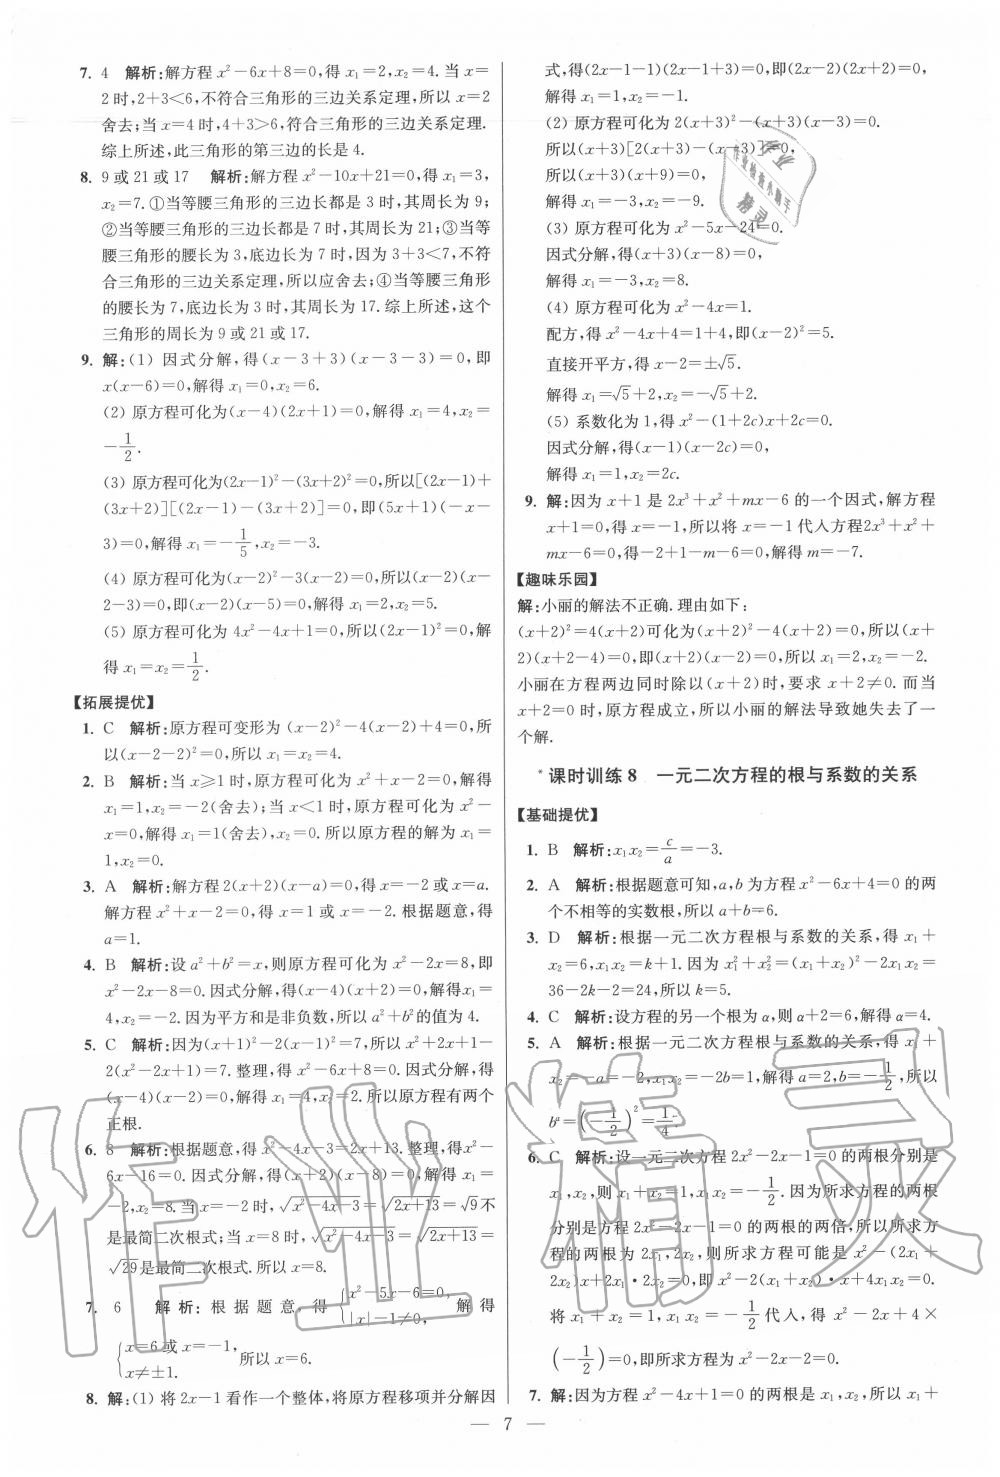 7. 4 解析:解方程 x²−6x+8=0,得 x₁=2,x₂=4. 当 x=
2 时,2+3<6,不符合三角形的三边关系定理,所以 x=2
舍去;当 x=4 时,4+3>6,符合三角形的三边关系定理.
综上所述,此三角形的第三边的长是 4.
8. 9 或 21 或 17 解析:解方程 x²−10x+21=0,得 x₁=3,
x₂=7. ①当等腰三角形的三边长都是 3 时,其周长为 9;
②当等腰三角形的三边长都是 7 时,其周长为 21;③当等
腰三角形的腰长为 3,底边长为 7 时,因为 3+3<7,不符
合三角形的三边关系定理,所以应舍去;④当等腰三角形
的腰长为 7,底边长为 3 时,其周长为 17. 综上所述,这个
三角形的周长为 9 或 21 或 17.
9. 解:(1) 因式分解,得(x−3+3)(x−3−3)=0,即
x(x−6)=0,解得 x₁=0,x₂=6.
(2) 原方程可化为(x−4)(2x+1)=0,解得 x₁=4,x₂=
−1/2.
(3) 原方程可化为(2x−1)²−(3x+2)²=0,所以[(2x−1)+
(3x+2)][(2x−1)−(3x+2)]=0,即(5x+1)(−x−
3)=0,解得 x₁=−1/5,x₂=−3.
(4) 原方程可化为(x−2)²−3(x−2)=0,所以(x−2)(x−
2−3)=0,即(x−2)(x−5)=0,解得 x₁=2,x₂=5.
(5) 原方程可化为 4x²−4x+1=0,所以(2x−1)²=0,解
得 x₁=x₂=1/2.
【拓展提优】
1. C 解析:原方程可变形为 (x−2)²−4(x−2)+4=0,所
以(x−2−2)²=0,所以 x₁=x₂=4.
2. B 解析:当 x≥1 时,原方程可化为 x²+x−2=0,解得
x₁=1,x₂=−2(舍去);当 x<1 时,原方程可化为 x²−
x=0,解得 x₁=1(舍去),x₂=0. 所以原方程的解为 x₁=
1,x₂=0.
3. A 解析:解方程 2(x+2)(x−a)=0,得 x=−2 或 x=a.
解方程 x²+x−2=0,得 x=1 或 x=−2. 根据题意,得
a=1.
4. B 解析:设 a²+b²=x,则原方程可化为 x²−2x=8,即
x²−2x−8=0. 因式分解,得(x−4)(x+2)=0,解得 x₁=
4,x₂=−2. 因为平方和是非负数,所以 a²+b²的值为 4.
5. C 解析:因为(x+1)²−2(x−1)²=7,所以 x²+2x+1−
2(x²−2x+1)=7. 整理,得 x²−6x+8=0. 因式分解,得
(x−4)(x−2)=0,解得 x₁=4,x₂=2. 所以原方程有两个
正根.
6. 8 解析:根据题意,得 x²−4x−3=2x+13. 整理,得x²−
6x−16=0. 因式分解,得(x+2)(x−8)=0,解得 x₁=
−2,x₂=8. 当 x=−2 时,√(x²−4x−3)=√(2x+13)=√9不
是最简二次根式;当 x=8 时,√(x²−4x−3)=√(2x+13)=
√29是最简二次根式. 所以 x=8.
7. 6 解析:根据题意,得{x²−5x−6=0, |x|−1≠0, 解得
{x=6 或 x=−1, x≠±1. 所以 x=6.
8. 解:(1) 将 2x−1 看作一个整体,将原方程移项并分解因
式,得(2x−1−1)(2x−1+3)=0,即(2x−2)(2x+2)=0,
解得 x₁=1,x₂=−1.
(2) 原方程可化为 2(x+3)²−(x+3)(x−3)=0.
所以(x+3)[2(x+3)−(x−3)]=0,
即(x+3)(x+9)=0,
解得 x₁=−3,x₂=−9.
(3) 原方程可化为 x²−5x−24=0.
因式分解,得(x+3)(x−8)=0,
解得 x₁=−3,x₂=8.
(4) 原方程可化为 x²−4x=1.
配方,得 x²−4x+4=1+4,即(x−2)²=5.
直接开平方,得 x−2=±√5.
解得 x₁=√5+2,x₂=−√5+2.
(5) 系数化为 1,得 x²−(1+2c)x+2c=0.
因式分解,得(x−1)(x−2c)=0,
解得 x₁=1,x₂=2c.
9. 解:因为 x+1 是 2x³+x²+mx−6 的一个因式,解方程
x+1=0,得 x=−1,所以将 x=−1 代入方程2x³+x²+
mx−6=0,得−2+1−m−6=0,解得 m=−7.
【趣味乐园】
解:小丽的解法不正确. 理由如下:
(x+2)²=4(x+2)可化为(x+2)²−4(x+2)=0,所以(x+
2)(x+2−4)=0,即(x+2)(x−2)=0,所以x₁=2,x₂=−2.
小丽在方程两边同时除以(x+2)时,要求 x+2≠0. 而当
x+2=0 时,原方程成立,所以小丽的解法导致她失去了一
个解.
*课时训练 8 一元二次方程的根与系数的关系
【基础提优】
1. B 解析:x₁x₂=c/a=−3.
2. A 解析:根据题意可知,a,b 为方程 x²−6x+4=0 的两
个不相等的实数根,所以 a+b=6.
3. D 解析:根据一元二次方程根与系数的关系,得 x₁+
x₂=6,x₁x₂=k+1. 因为 x₁²+x₂²=(x₁+x₂)²−2x₁x₂=
36−2k−2=24,所以 k=5.
4. C 解析:设方程的另一个根为 α,则 α+2=6,解得 α=4.
5. A 解析:根据一元二次方程根与系数的关系,得 x₁+
x₂=−a=−2,x₁x₂=−2b=1,解得 a=2,b=−1/2,所以
bᵃ=(−1/2)²=1/4.
6. C 解析:设一元二次方程 2x²−2x−1=0 的两根分别是
x₁,x₂,则 x₁+x₂=1,x₁x₂=−1/2. 因为所求方程的两根
分别是方程 2x²−2x−1=0 的两根的两倍,所以所求方
程的两根为 2x₁,2x₂,则所求方程可能是 x²−(2x₁+
2x₂)x+2x₁·2x₂=0,即 x²−2(x₁+x₂)·x+4x₁x₂=0.
将 x₁+x₂=1,x₁x₂=−1/2代入,得 x²−2x+4×
(−1/2)=0,即所求方程为 x²−2x−2=0.
7. 解:因为方程 x²−4x+1=0 的两根是 x₁,x₂,所以 x₁+
— 7 —
作业精灵
作业检查小助手
精灵